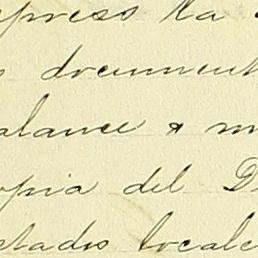 xpress la
documents
alance & m
opia del D
stados locale